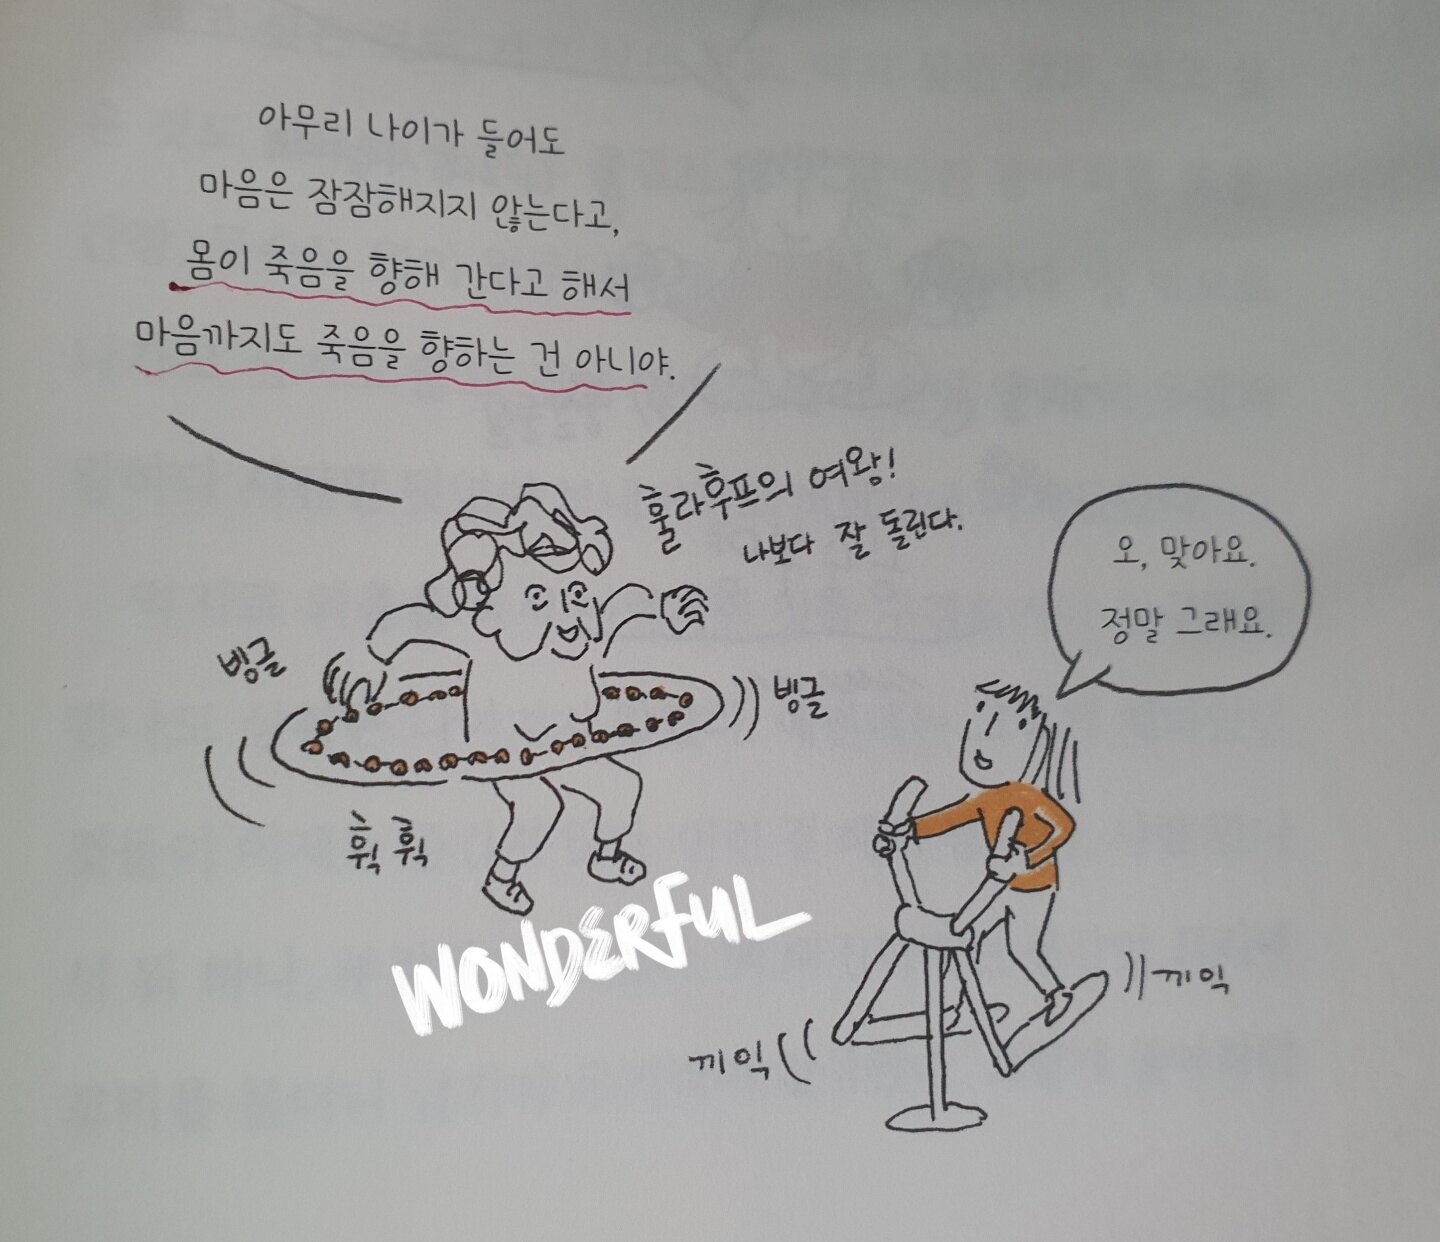 아무리 나이가 들어도
마음은 잠잠해지지 않는다고,
몸이 죽음을 향해 간다고 해서
마음까지도 죽음을 향하는 건 아니야.
훌라후프의 여왕!
나보다 잘 돌린다.
오, 맞아요.
정말 그래요.
빙글
빙글
휙 휙
WONDERFUL
끼익
끼익